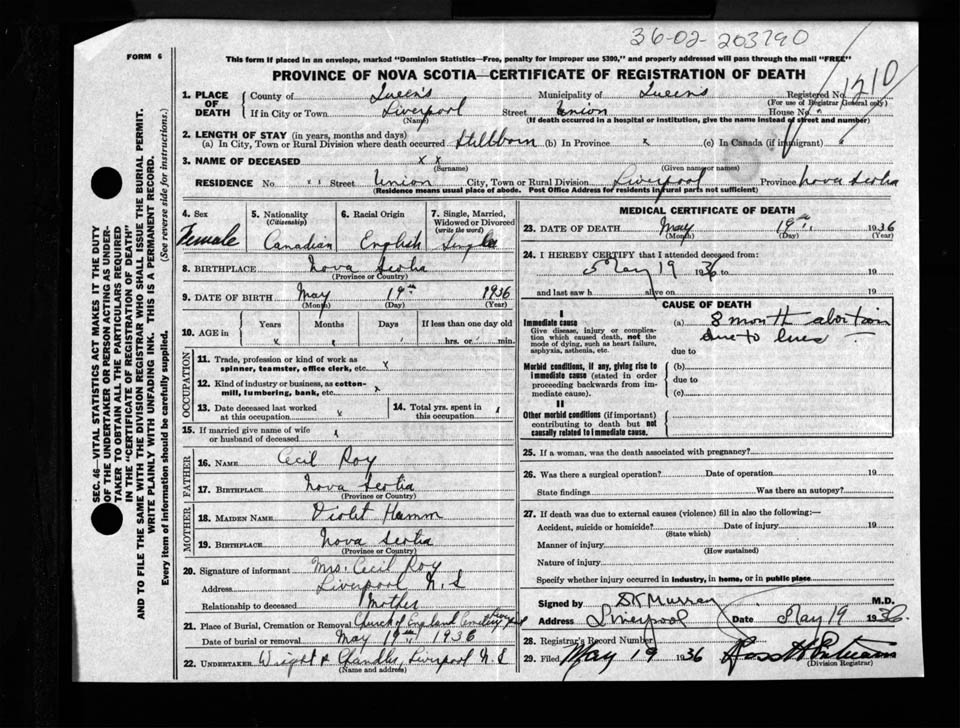 36-02-203790
FORM 6
This form if placed in an envelope, marked "Dominion Statistics—Free, penalty for improper use $300," and properly addressed will pass through the mail "FREE"
PROVINCE OF NOVA SCOTIA—CERTIFICATE OF REGISTRATION OF DEATH
1210
1. PLACE OF DEATH { County of Queen's Municipality of Queen's Registered No.
(For use of Registrar General only)
If in City or Town Liverpool Street Union House No. "
(Name) (If death occurred in a hospital or institution, give the name instead of street and number)
2. LENGTH OF STAY (in years, months and days)
(a) In City, Town or Rural Division where death occurred Stillborn (b) In Province x (c) In Canada (if immigrant) x
3. NAME OF DECEASED x x
(Surname) (Given name or names)
RESIDENCE No. " Street Union City, Town or Rural Division Liverpool Province Nova Scotia
(Residence means usual place of abode. Post Office Address for residents in rural parts not sufficient)
4. Sex Female
5. Nationality (Citizenship) Canadian
6. Racial Origin English
7. Single, Married, Widowed or Divorced (write the word) Single
8. BIRTHPLACE Nova Scotia
(Province or Country)
9. DATE OF BIRTH May 19th 1936
(Month) (Day) (Year)
10. AGE in { Years Months Days If less than one day old
x x hrs. or min.
OCCUPATION
11. Trade, profession or kind of work as spinner, teamster, office clerk, etc. x
12. Kind of industry or business, as cotton-mill, lumbering, bank, etc. x
13. Date deceased last worked at this occupation x
14. Total yrs. spent in this occupation
15. If married give name of wife or husband of deceased x
FATHER
16. NAME Cecil Roy
17. BIRTHPLACE Nova Scotia
(Province or Country)
MOTHER
18. MAIDEN NAME Violet Hamm
19. BIRTHPLACE Nova Scotia
(Province or Country)
20. Signature of informant Mrs. Cecil Roy
Address Liverpool N.S
Relationship to deceased Mother
21. Place of Burial, Cremation or Removal Church of England Cemetery Liverpool
Date of burial or removal May 19th 1936
22. UNDERTAKER Wright & Chandler, Liverpool N.S
(Name and address)
MEDICAL CERTIFICATE OF DEATH
23. DATE OF DEATH May 19th 1936
(Month) (Day) (Year)
24. I HEREBY CERTIFY that I attended deceased from:
May 19 1936 to 19
and last saw h alive on 19
CAUSE OF DEATH
I
Immediate cause
Give disease, injury or complication which caused death, not the mode of dying, such as heart failure, asphyxia, asthenia, etc.
(a) 8 month abortion
due to lues
due to
Morbid conditions, if any, giving rise to immediate cause (stated in order proceeding backwards from immediate cause).
(b)
due to
(c)
II
Other morbid conditions (if important) contributing to death but not causally related to immediate cause.
25. If a woman, was the death associated with pregnancy?
26. Was there a surgical operation? Date of operation 19
State findings Was there an autopsy?
27. If death was due to external causes (violence) fill in also the following:—
Accident, suicide or homicide? Date of injury 19
(State which)
Manner of injury
(How sustained)
Nature of injury
Specify whether injury occurred in industry, in home, or in public place
Signed by Murray M.D.
Address Liverpool Date May 19 1936
28. Registrar's Record Number
29. Filed May 19 1936
(Division Registrar)
SEC. 46—VITAL STATISTICS ACT MAKES IT THE DUTY
OF THE UNDERTAKER OR PERSON ACTING AS UNDER-
TAKER TO OBTAIN ALL THE PARTICULARS REQUIRED
IN THE "CERTIFICATE OF REGISTRATION OF DEATH"
AND TO FILE THE SAME WITH THE DIVISION REGISTRAR WHO SHALL ISSUE THE BURIAL PERMIT.
WRITE PLAINLY WITH UNFADING INK. THIS IS A PERMANENT RECORD.
Every item of information should be carefully supplied. (See reverse side for instructions.)